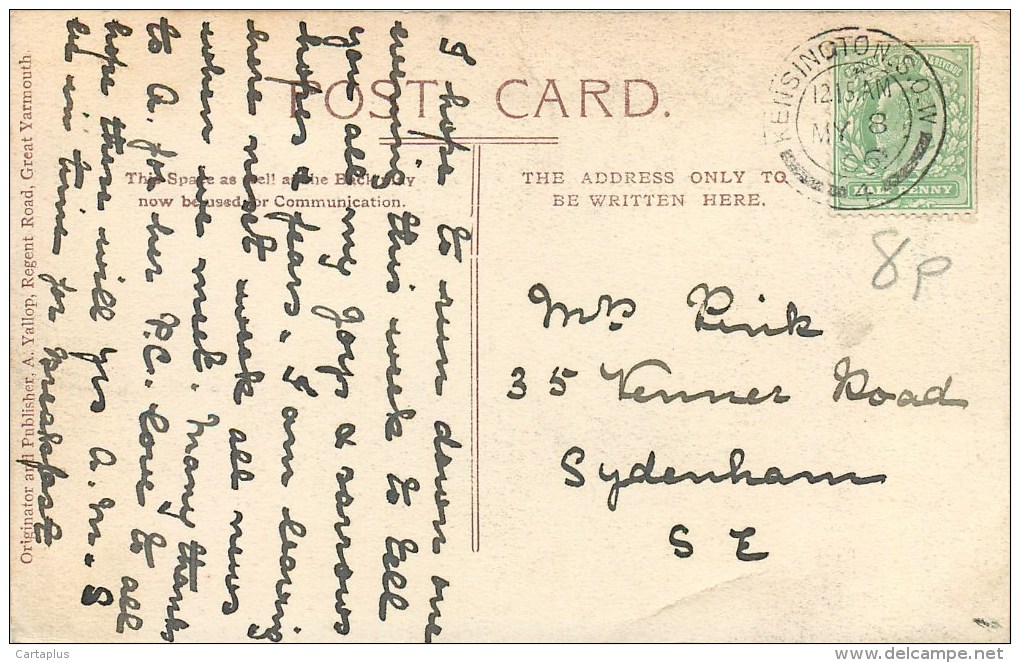 POST CARD.
This Space as well as the Back may
now be used for Communication.
THE ADDRESS ONLY TO
BE WRITTEN HERE.
Originator and Publisher, A. Yallop, Regent Road, Great Yarmouth.
KENSINGTON.S.O.W
12.15 AM
MY 8
06
HALFPENNY
8p
Mrs Pink
35 Venner Road
Sydenham
S E
I hope to run down one
evening this week to tell
you all my Joys & sorrows
hopes & fears. I am leaving
here next week all news
when we meet. Many thanks
to A. for her P.C. love to all
hope there will you A.M.S
be in time for breakfast
Cartaplus
delcampe.net